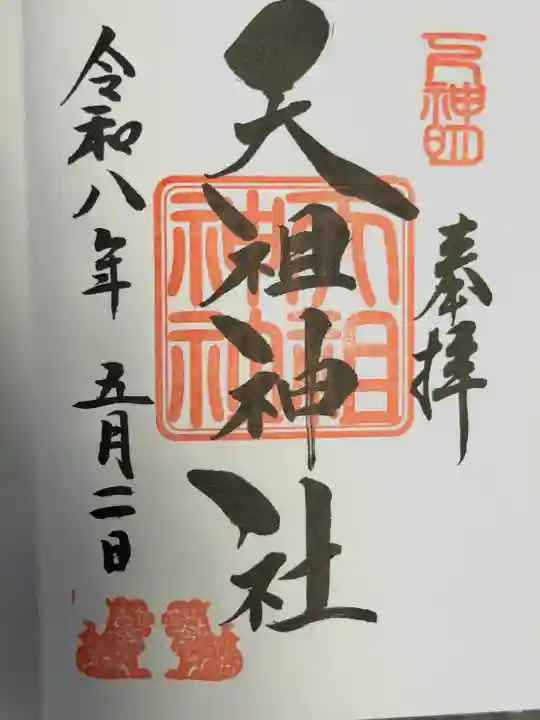 奉拝
天祖神社
天祖神社
令和八年 五月二日